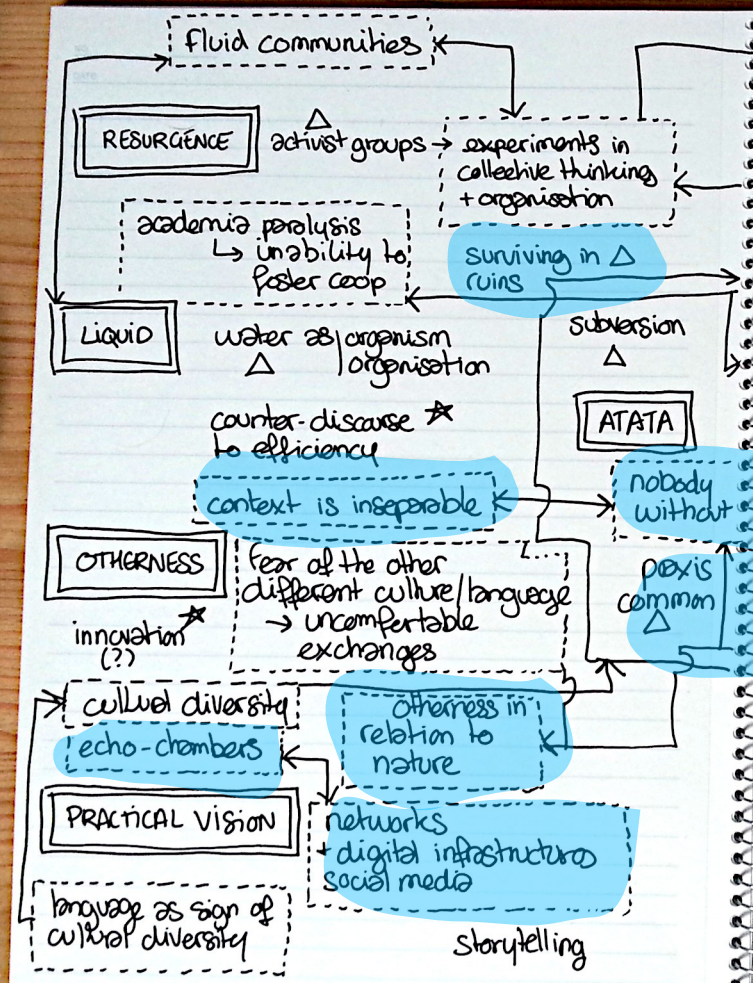 fluid communities
RESURGENCE
△
activist groups →
experiments in
collective thinking
+ organisation
academia paralysis
↳ inability to
foster coop
surviving in △
ruins
LIQUID
water as / organism
organisation
△
subversion
△
counter-discourse ☆
to efficiency
ATATA
context is inseparable
nobody
without
OTHERNESS
fear of the other
different culture/language
→ uncomfertable
exchanges
praxis
common
△
innovation ☆
(?)
cultural diversity
echo-chambers
otherness in
relation to
nature
PRACTICAL VISION
networks
+ digital infrastructures
social media
language as sign of
cultural diversity
storytelling